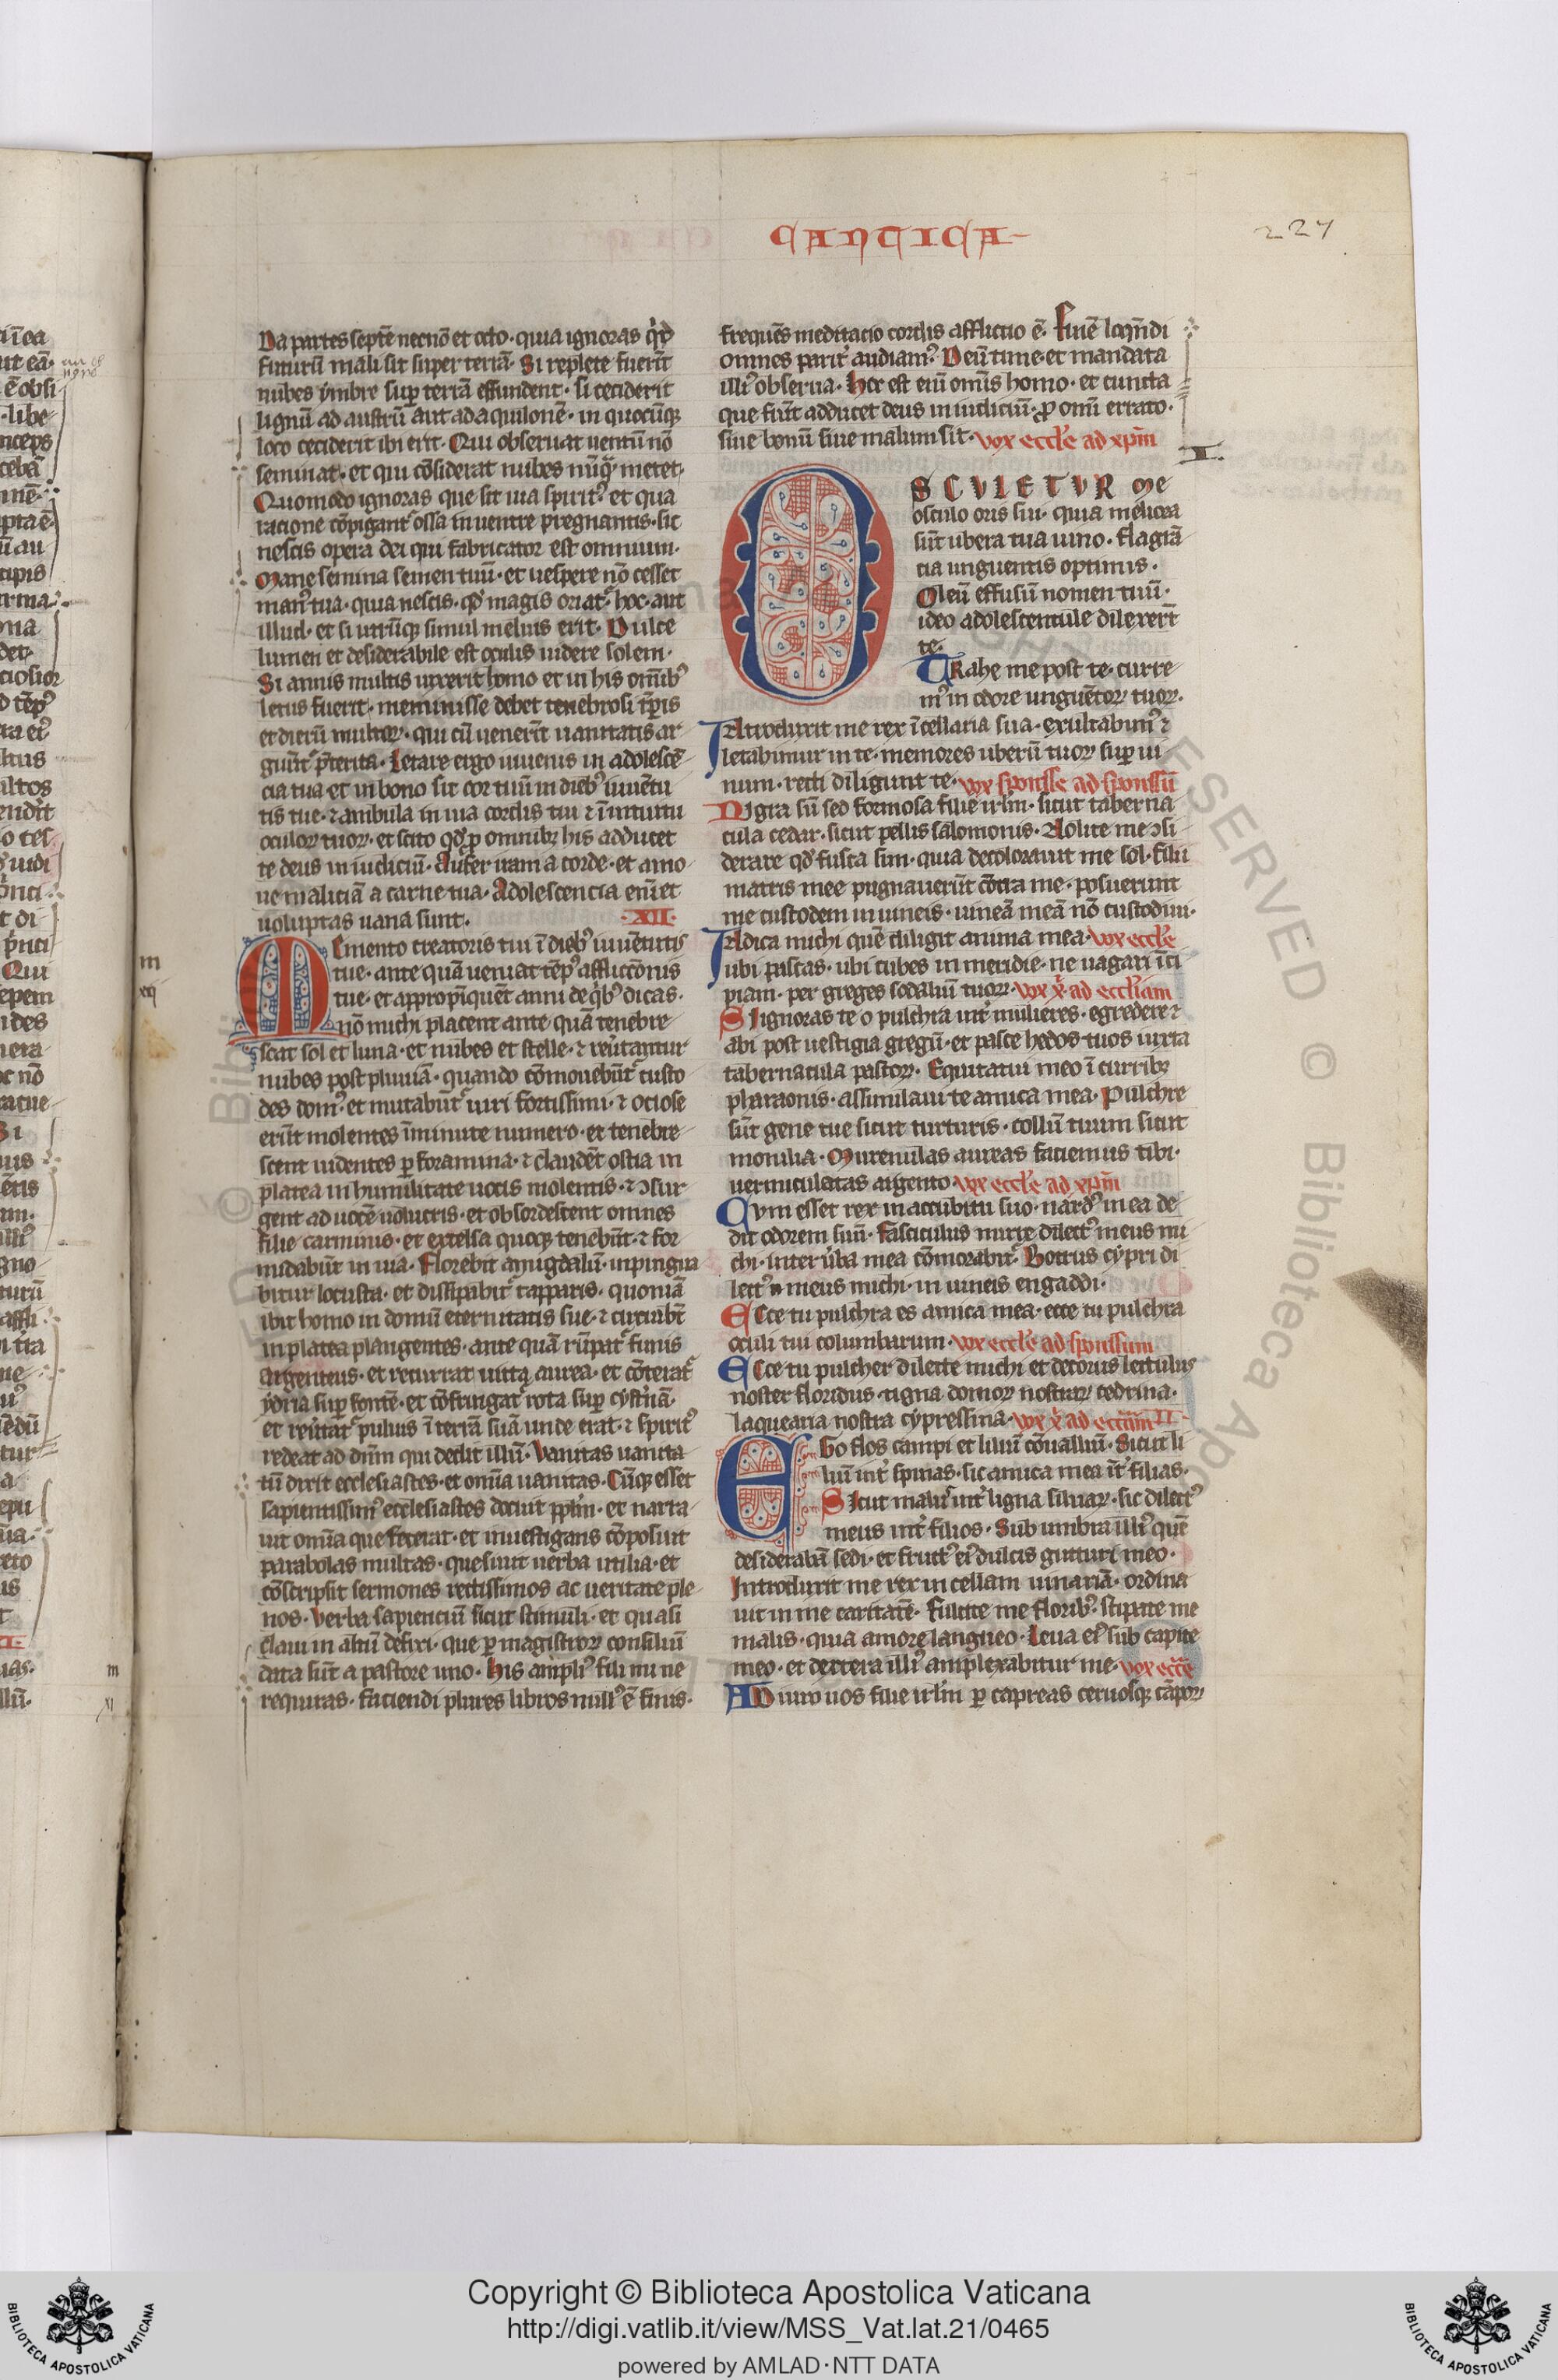 CANTICA
227
Da partes septē necnō et octo · quia ignoras qͥd
futurū mali sit super terrā · Si replete fuerīt
nubes ymbre suꝑ terrā effundent · si ceciderit
lignū ad austrū aut ad aquilonē · in quocūqꝫ
loco ceciderit ibi erit · Qui obseruat uentū nō
seminat · et qui cōsiderat nubes nūqͣ metet ·
Quomodo ignoras que sit uia spiritꝰ et qua
racione cōpigantᷣ ossa in uentre pregnantis · sic
nescis opera dei qui fabricator est omnium ·
Mane semina semen tuū · et uespere nō cesset
manꝰ tua · quia nescis · qd̄ magis oriatᷣ hoc · aut
illud · et si utrūqꝫ simul melius erit · Dulce
lumen et desiderabile est oculis uidere solem ·
Si annis multis uixerit homo et in his om̄ibꝰ
letus fuerit · meminisse debet tenebrosi tꝑis
et dierū multoꝝ · qui cū uenerīt uanitatis ar
guūtᷣ p̄terita · Letare ergo iuuenis in adolescē
cia tua et in bono sit cor tuū in diebꝰ iuuētu
tis tue · ⁊ ambula in uia cordis tui ⁊ ī intuitu
oculoꝝ tuoꝝ · et scito qd̄ ꝓ omnibꝫ his adducet
te deus in iudiciū · Aufer iram a corde · et amo
ue maliciā a carne tua · Adolescencia enī et
uoluptas uana sunt · XII ·
Memento creatoris tui ī diebꝰ iuuētutis
tue · ante quā ueniat tēpꝰ afflictōnis
tue · et appropīquēt anni de qͥbꝰ dicas ·
nō michi placent ante quā tenebre
scat sol et luna · et nubes et stelle · ⁊ reūtantur
nubes post pluuiā · quando cōmouebūtᷣ custo
des domꝰ · et mutabūtᷣ uiri fortissimi · ⁊ ociose
erūt molentes īminute numero · et tenebre
scent uidentes ꝑ foramina · ⁊ claudēt ostia in
platea in humilitate uocis molentis · ⁊ ↄsur
gent ad uocē uolucris · et obsordescent omnes
filie carminis · et excelsa quoqꝫ tenebūt · ⁊ for
midabūt in uia · Florebit amigdalū · inpingua
bitur locusta · et dissipabitᷣ capparis · quoniā
ibit homo in domū eternitatis sue · ⁊ circuibt̄
in platea plangentes · ante quā rūpatᷣ funis
argenteus · et recurrat uitta aurea · et cōteratᷣ
ydria suꝑ fontē · et cōfringatᷣ rota suꝑ cysternā ·
et reūtatᷣ puluis ī terrā suā unde erat · ⁊ spiritꝰ
redeat ad dn̄m qui dedit illū · Vanitas uanita
tū dixit ecclesiastes · et om̄ia uanitas · Cūqꝫ esset
sapientissimꝰ ecclesiastes docuit ppl̄m · et narra
uit om̄ia que fecerat · et inuestigans cōposuit
parabolas multas · quesiuit uerba utilia · et
cōscripsit sermones rectissimos ac ueritate ple
nos · Verba sapienciū sicut stimuli · et quasi
claui in altū defixi · que ꝑ magistroꝝ consiliū
data sūt a pastore uno · His ampliꝰ fili mi ne
requiras · faciendi plures libros nullꝰ ē finis ·
frequēs meditacio cordis afflictio ē · Finē loqn̄di
omnes paritᷣ audiamꝰ · Deū time · et mandata
illiꝰ obserua · Hoc est enī omīs homo · et cuncta
que fiūt adducet deus in iudiciū · ꝓ om̄i errato ·
siue bonū siue malum sit · vox eccl̄e ad xp̄m
I ·
OSCVLETVR me
osculo oris sui · quia meliora
sūt ubera tua uino · flagrā
cia unguentis optimis ·
Oleū effusū nomen tuū ·
ideo adolescentule dilexerūt
te ·
TRahe me post te · curre
mꝰ in odore unguētoꝝ tuoꝝ ·
INtroduxit me rex ī cellaria sua · exultabimꝰ ⁊
letabimur in te · memores uberū tuoꝝ suꝑ ui
num · recti diligunt te · vox sponsse ad sponssū
NIgra sū sed formosa filie ierl̄m · sicut taberna
cula cedar · sicut pellis salomonis · Nolite me ↄsi
derare qd̄ fusca sim · quia decolorauit me sol · filii
matris mee pugnauerūt cōtra me · posuerunt
me custodem in uineis · uineā meā nō custodiui ·
INdica michi quē diligit anima mea · vox eccl̄e
ubi pascas · ubi cubes in meridie · ne uagari īci
piam · per greges sodaliū tuoꝝ · vox x̄ · ad eccl̄iam
SI ignoras te o pulchra intᷣ mulieres · egredere ⁊
abi post uestigia gregū · et pasce hedos tuos iuxta
tabernacula pastoꝝ · Equitatui meo ī curribꝫ
pharaonis · assimilaui te amica mea · Pulchre
sūt gene tue sicut turturis · collū tuum sicut
monilia · Murenulas aureas faciemus tibi ·
uermiculatas argento · vox eccl̄e ad xp̄m
CVm esset rex in accubitu suo · nardꝰ mea de
dit odorem suū · Fasciculus mirre dilectꝰ meus mi
chi · inter ub̄a mea cōmorabitᷣ · Botrus cypri di
lectꝰ meus michi · in uineis engaddi ·
ECce tu pulchra es amica mea · ecce tu pulchra
oculi tui columbarum · vox eccl̄e ad sponssum
ECce tu pulcher dilecte michi et decorus lectulus
noster floridus · tigna domoꝝ nostraꝝ cedrina ·
laquearia nostra cypressina · vox x̄ ad eccl̄iam II ·
EGo flos campi et liliū cōualliū · Sicut li
liū intᷣ spinas · sic amica mea īt filias ·
SIcut malꝰ intᷣ ligna siluaꝝ · sic dilectꝰ
meus intᷣ filios · Sub umbra illiꝰ quē
desiderabā sedi · et fructꝰ eiꝰ dulcis gutturi meo ·
Introduxit me rex in cellam uinariā · ordina
uit in me caritatē · Fulcite me floribꝰ · stipate me
malis · quia amore langueo · Leua eiꝰ sub capite
meo · et dextera illiꝰ amplexabitur me · vox eccl̄e
ADiuro uos filie ierl̄m ꝑ capreas ceruosqꝫ cāpoꝝ
Copyright © Biblioteca Apostolica Vaticana
http://digi.vatlib.it/view/MSS_Vat.lat.21/0465
powered by AMLAD·NTT DATA
BIBLIOTECA APOSTOLICA VATICANA
BIBLIOTECA APOSTOLICA VATICANA